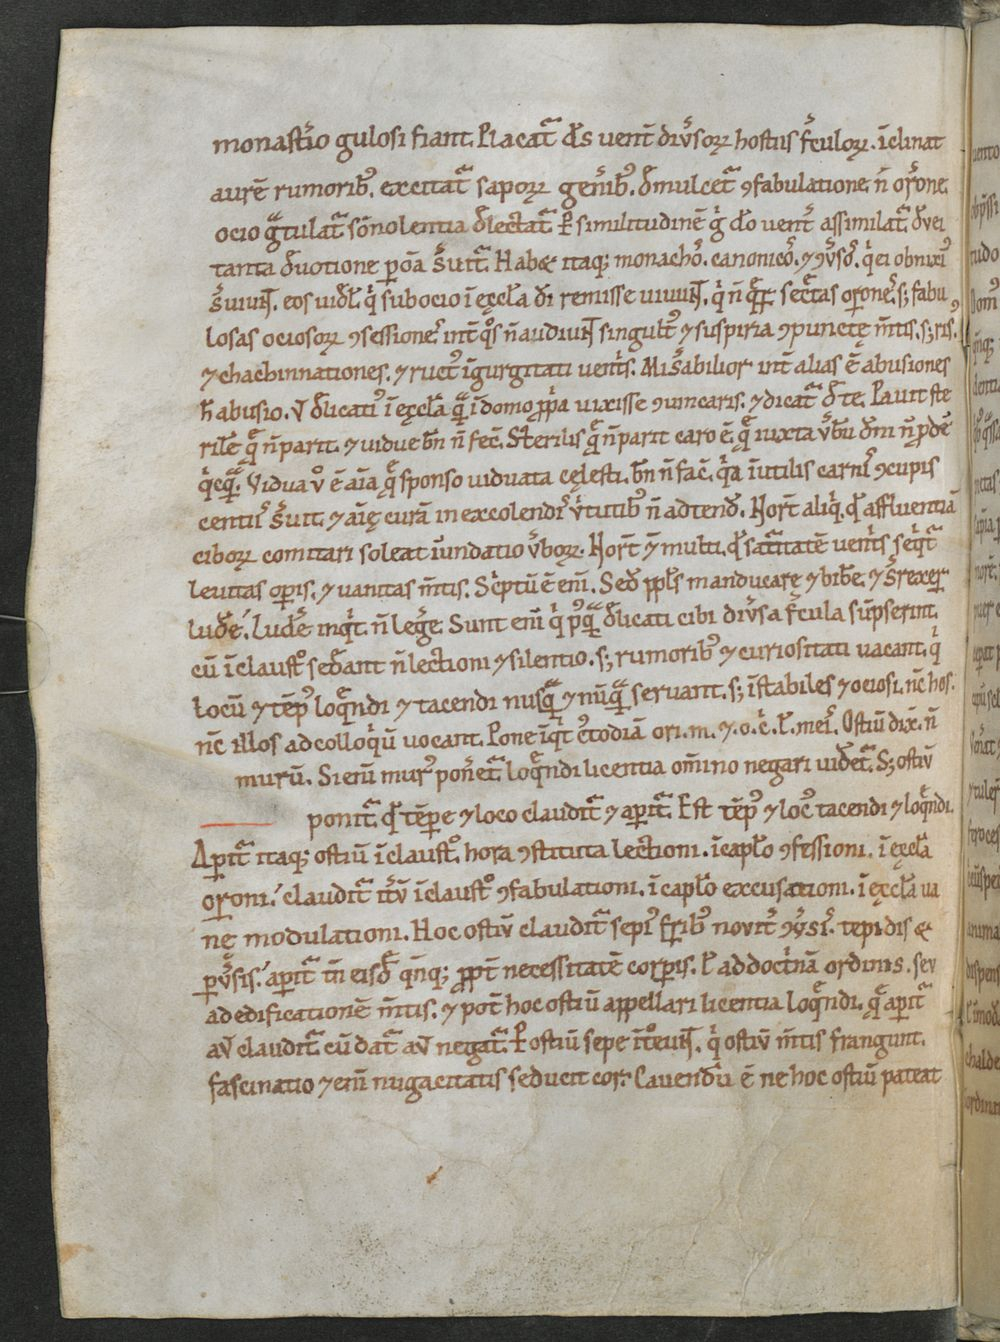 monast̾io gulosi fiant. Placat᷑ d̄s vent̄ diu̾soꝝ hostiis f̾culoꝝ. īclinat
aurē rumorib᷒. excitat᷑ sapoꝝ gen̾ib᷒. d̾mulcet᷑ ꝯfabulatione n̄ or̄one.
ocio gͣtulat᷑ sōnolentia d̾lectat᷑. Ꝑ similitudinē gͥ d̄o vent᷒ assimilat᷑. d̾vei
tanta d̾uotione ꝑ oīa s̾uit᷑. Habet itaq; monachos. canonicos. ⁊ ꝯu̾sos. qͥ ei obnixi᷒
s̾uiūt. eos uidꝫ qͥ sub ocio ī ęcclā d̄i remisse uiuūt. qͥ n̄ sec̄tas or̄ones. s; fabu
losas ociosoꝝ ꝯsessiones int̾ qͦs n̄ audiūt singult᷒ ⁊ suspiria ꝯpunctę m̄tis. s; ris᷒
⁊ chachinnationes. ⁊ ruct᷒ īgurgitati uent̾s. Mis̾abilior int̾ alias ē abusiones
h̄ abusio. v̾ d̾licati᷒ ī ęcclā qͣ̄ ī domo ꝓpͥa uixisse ꝯuincaris. ⁊ dicat᷑ d̾ te. Pauit ste
rilē qͣ̄ n̄ parit. ⁊ uidue bn̄ n̄ fec̄. Sterilis qͣ̄ n̄ parit caro ē. qͣ̄ iuxta u̾bū dn̄i n̄ ꝓdē
qͥcqͣ̄. Vidua v̊ ē aīa qͣ̄ sponso uiduata cęlesti. bn̄ n̄ fac̄. qͥa īutilis carnis ꝯcupis
centiis s̾uit. ⁊ aīę curā in excolendis v̾tutib᷒ n̄ adtend̄. Hort̄ aliqͥ. qd̾ affluentiā
ciboꝝ comitari soleat īundatio u̾boꝝ. Hort̄ ⁊ multi. qd̾ satͥitatē vent̾s seqͥt᷑
leuitas oꝑis. ⁊ uanitas m̄tis. Scͥptū ē enī. Sed̄ ppl̄s manducarę ⁊ bib̾e. ⁊ s̾rexer̄
lud̾e. Lud̾e inqͥt. n̄ leg̾e. Sunt enī qͥ p᷒qͣ̄ d̾licati cibi diu̾sa f̾cula sūpserint.
cū ī claustͦ sed̾ant n̄ lectioni ⁊ silentio. s; rumorib᷒ ⁊ curiositati uacant. qͥ
locū ⁊ tēp᷒ loqͣ̄ndi ⁊ tacendi nusqͣ̄ ⁊ nūqͣ̄ servant. s; īstabiles ⁊ ociosi. nc̄ hos.
nc̄ illos ad colloqͥū vocant. Pone īqͥt c᷒todiā ori. m. ⁊. o. c̾. l̄. meis. Ostiū dix̄. n̄
murū. Si enī mur᷒ poneret᷑. loqͣ̄ndi licentia om̄ino negari uid̾et᷑. S; ostiū
ponit᷑. qd̾ tēꝑe ⁊ loco claudit᷑ ⁊ aꝑit᷑. Est tēp᷒ ⁊ loc᷒ tacendi ⁊ loqͣ̄ndi.
Aꝑit᷑ itaq; ostiū ī claustͦ. hora ꝯstituta lectioni. ī capl̄o ꝯfessioni. ī ęcclā
or̄oni. claudit᷑ it̾ū ī claustͦ ꝯfabulationi. ī capl̄o excusationi. ī ęcclā ua
nę modulationi. Hoc ostiū claudit᷑ sepi᷒ fr̄ib᷒ novit᷒ ꝯu̾sis. tepidis et
ꝑu̾sis. aꝑit᷑ tn̄ eisd̾ qn̄q; ꝓpt̾ necessitatē corꝑis. l̄ ad doctͥnā ordinis. seu
ad edificationē m̄tis. ⁊ pot̄ hoc ostiū appellari licentia loqͣ̄ndi. qͣ̄ aꝑit᷑
au̾ claudit᷑. cū dat᷑ au̾ negat᷑. Ꝑ ostiū sepe ītͦeūt. qͥ ostiū m̄tis frangunt.
fascinatio ⁊enī nugacitatis seducit cor. Cauendū ē ne hoc ostiū pateat